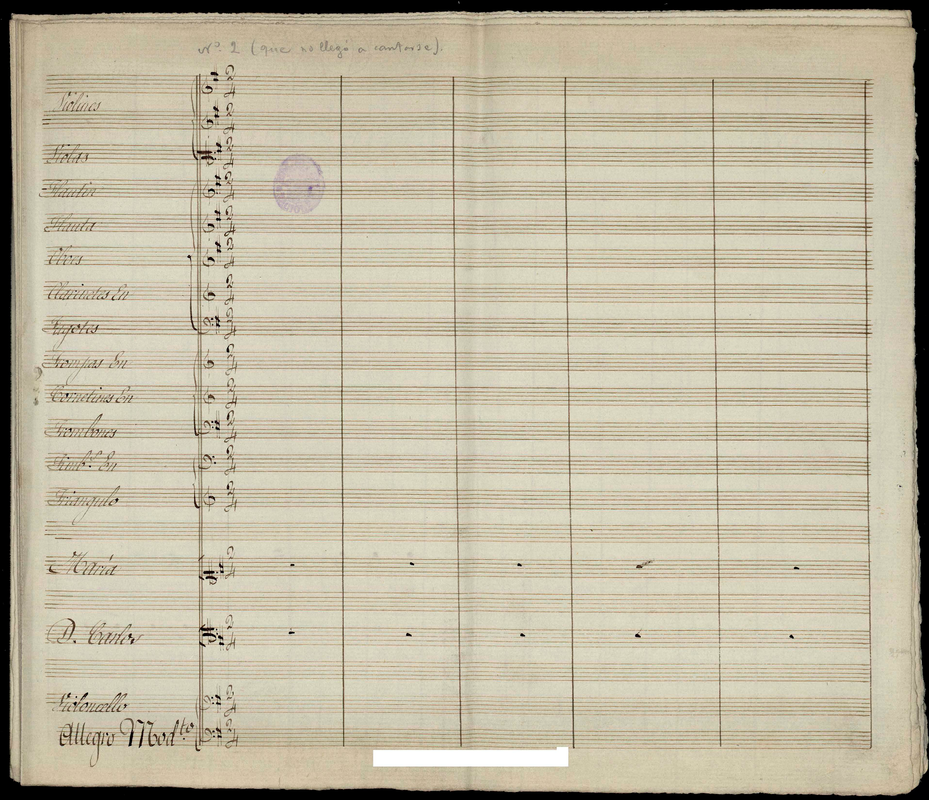 Nº 2 (que no llegó a cantarse).
Violines
Violas
Flautin
Flauta
Oboes
Clarinetes En
Fagotes
Trompas En
Cornetines En
Trombones
Timb.s En
Triangulo
María
D. Carlos
Violoncello
Allegro Mod.to